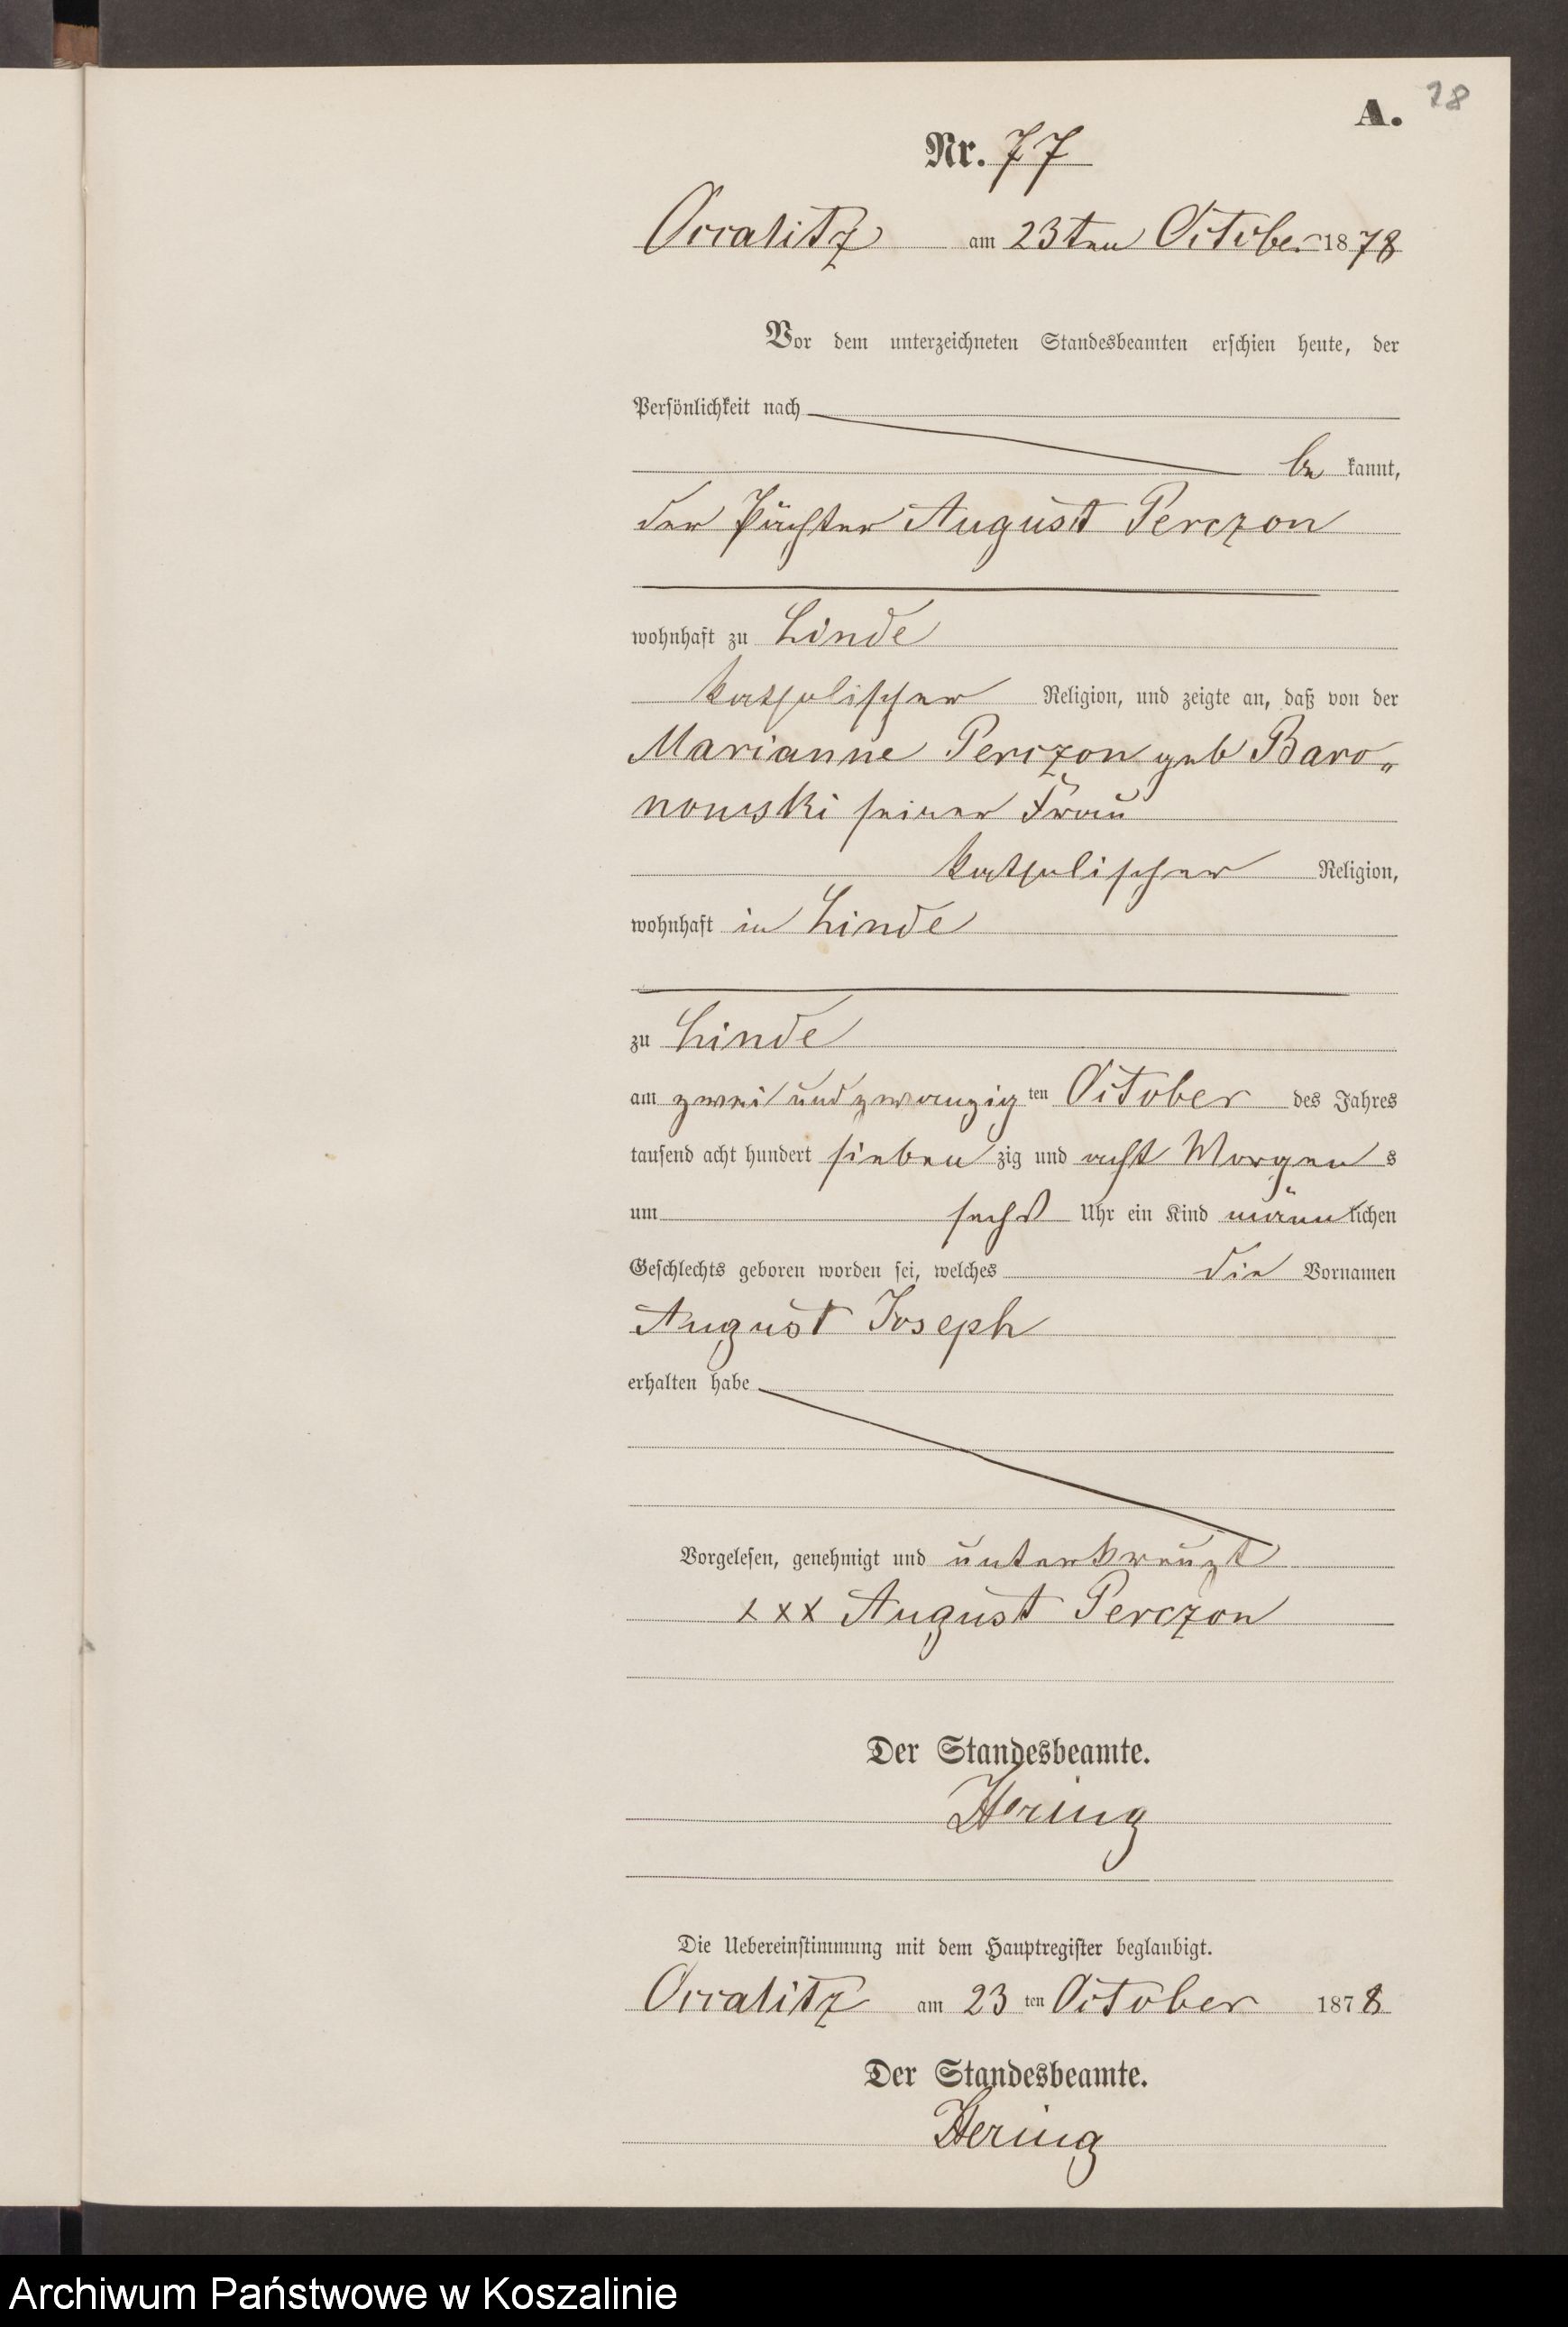 A. 78
Nr. 77
Occalitz am 23ten October 1878
Vor dem unterzeichneten Standesbeamten erschien heute, der
Persönlichkeit nach
be kannt,
der Pächter August Perczon
wohnhaft zu Linde
katholischer Religion, und zeigte an, daß von der
Marianne Perczon geb Baro„
nowski seiner Frau
katholischer Religion,
wohnhaft in Linde
zu Linde
am zwei und zwanzig ten October des Jahres
tausend acht hundert sieben zig und acht Morgen s
um sechs Uhr ein Kind männlichen
Geschlechts geboren worden sei, welches die Vornamen
August Joseph
erhalten habe
Vorgelesen, genehmigt und unterkreuzt
xxx August Perczon
Der Standesbeamte.
Hering
Die Uebereinstimmung mit dem Hauptregister beglaubigt.
Occalitz am 23 ten October 1878
Der Standesbeamte.
Hering
Archiwum Państwowe w Koszalinie